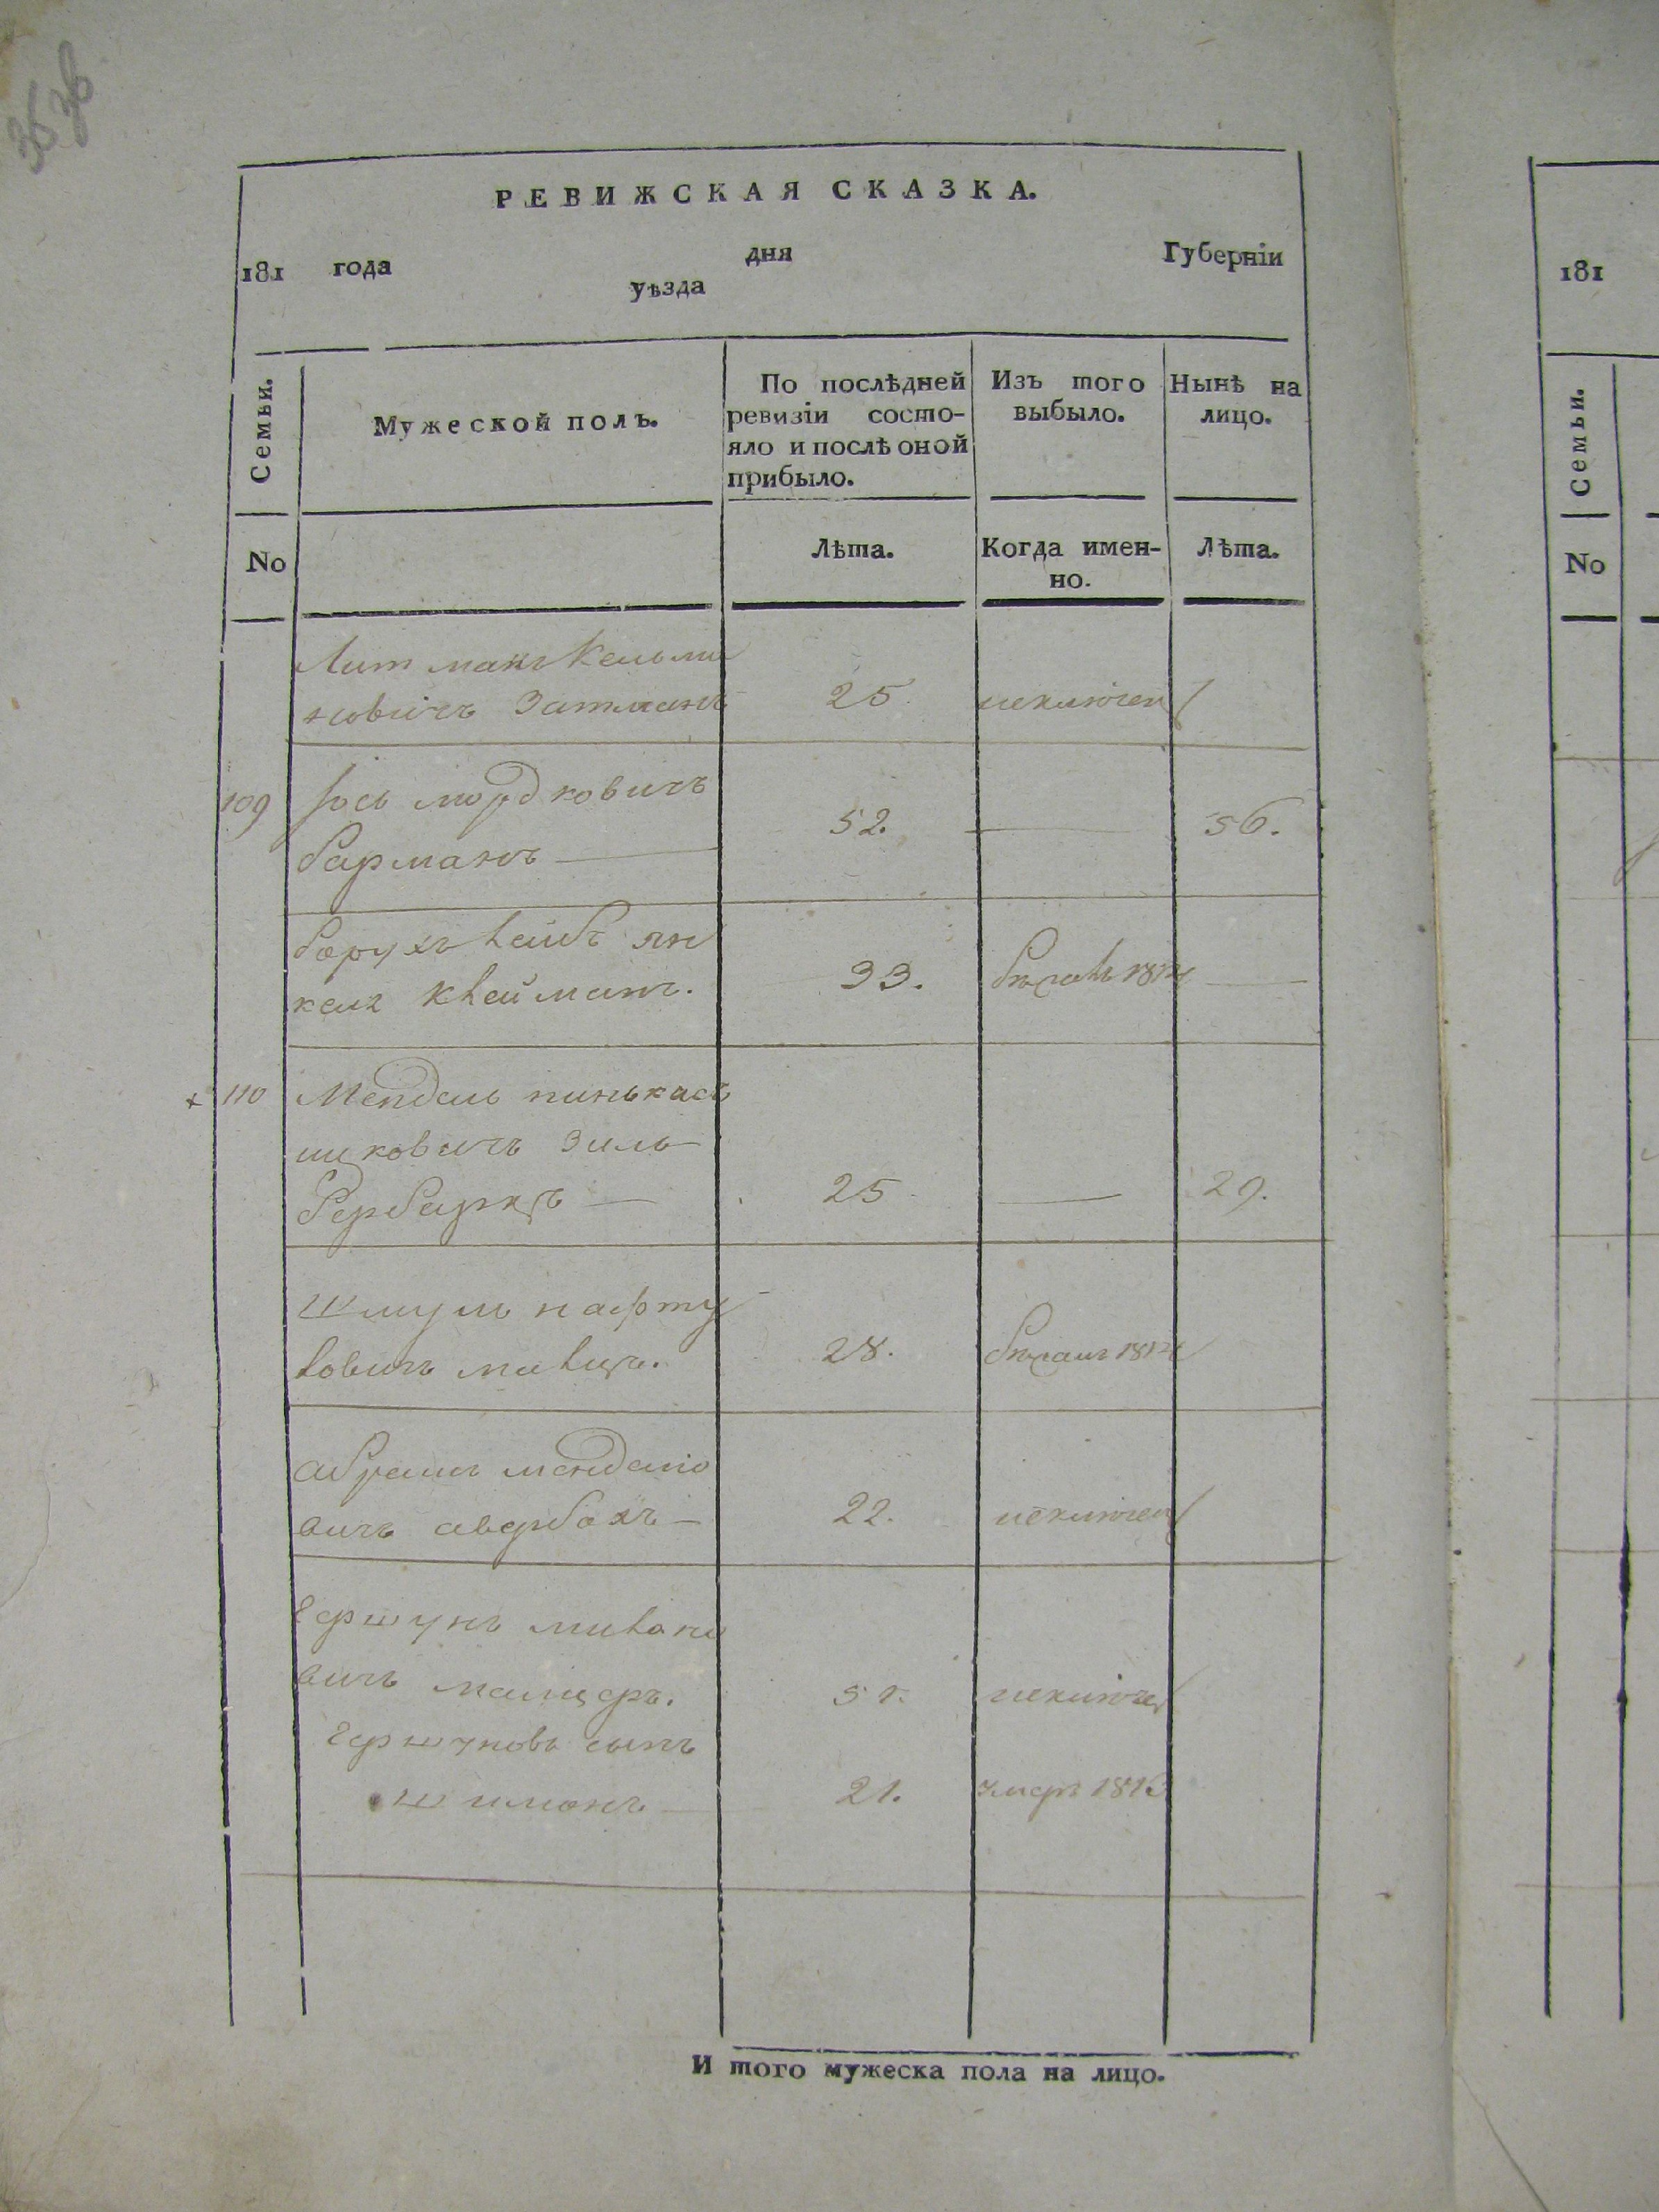 РЕВИЖСКАЯ СКАЗКА.
181 года дня Губерніи
уѣзда
Семьи. Мужеской полъ. По послѣдней ревизіи состо- яло и послѣ оной прибыло. Изъ того выбыло. Нынѣ на лицо.
No Лѣта. Когда имен- но. Лѣта.
Литманъ Кельма
новичъ Затманъ 25. исключен
109 Іось мордковичъ
барманъ 52. 56.
борухъ лейбъ ян
кель клейманъ. 33. бѣжалъ 1812
110 Мендель пинькас
шковичъ Зиль
бербаркъ 25 29.
Шмуль нафту
ловичъ 28. бѣжалъ 1812
абрамъ мендело
вичъ авербахъ 22. исключен
Гершунъ милано
вичъ малцеръ. 51. исключен
Гершуновъ сынъ
шимонъ 21. умеръ 1813
И того мужеска пола на лицо.
181
Семьи.
No